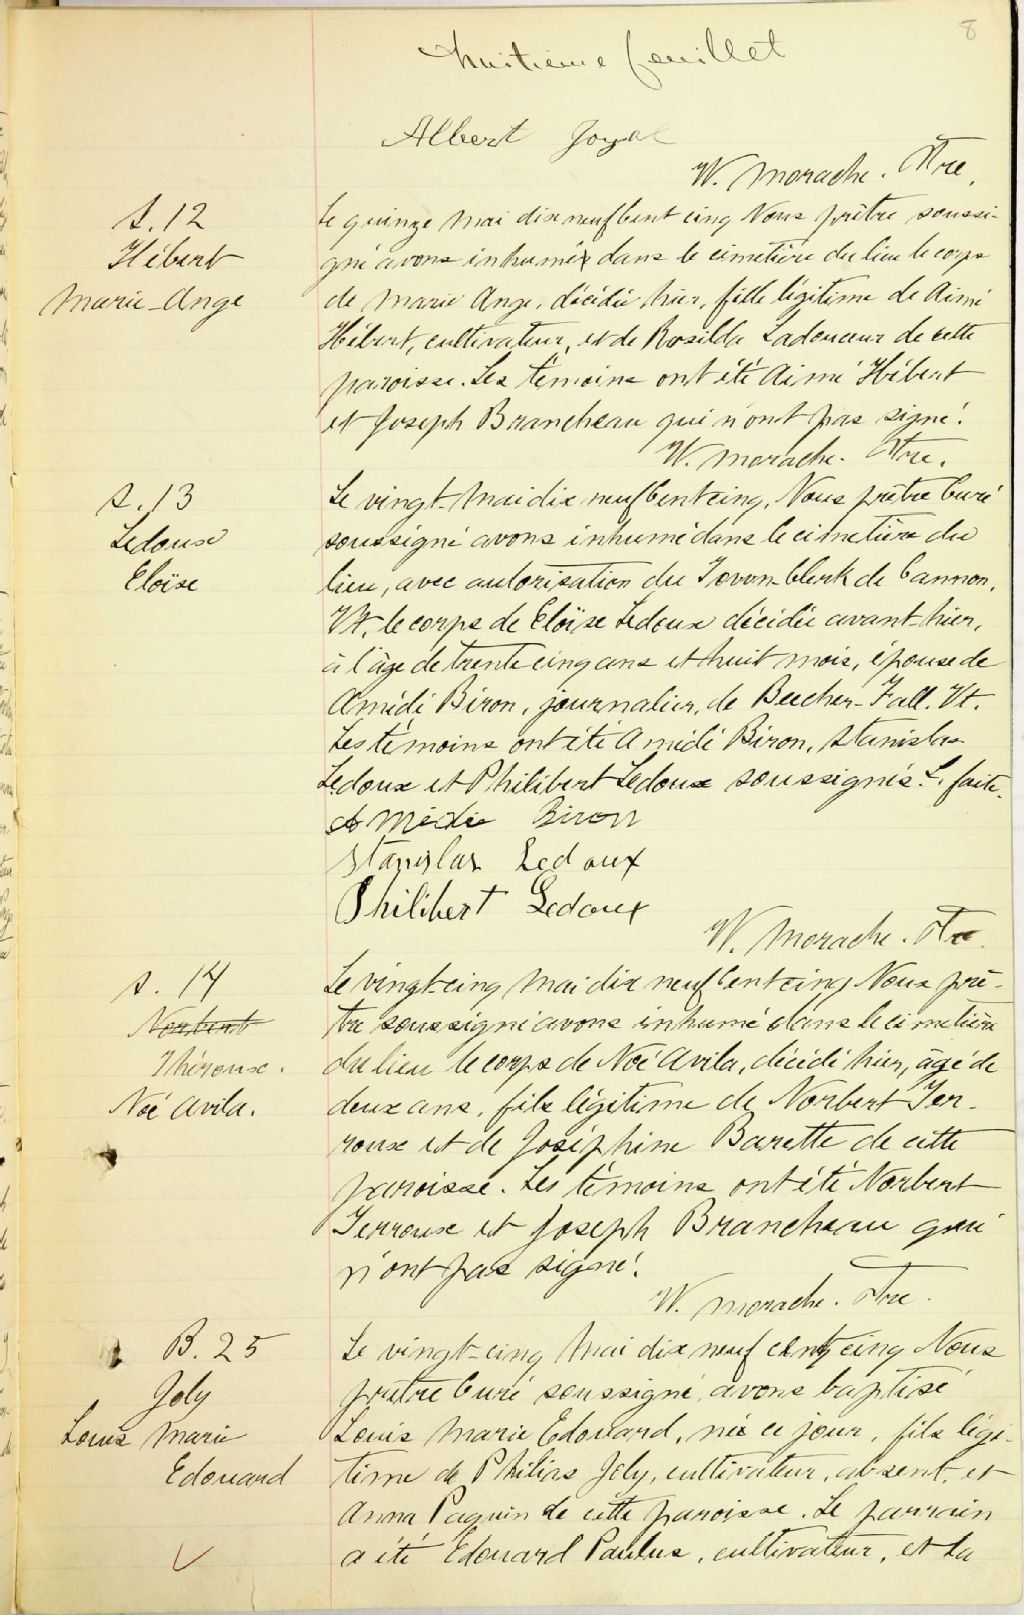 8
huitième feuillet
Albert Joyal
W. Morache. Ptre.
S. 12
Hébert
Marie-Ange
Le quinze mai dix neuf cent cinq Nous prêtre soussi-
gné avons inhumé dans le cimetière du lieu le corps
de Marie Ange, décédée hier, fille légitime de Aimé
Hébert, cultivateur, et de Rosilda Ladouceur de cette
paroisse. Les témoins ont été Aimé Hébert
et Joseph Brancheau qui n'ont pas signé.
W. Morache. Ptre.
S. 13
Ledoux
Eloïse
Le vingt-mai dix neuf cent cinq, Nous prêtre Curé
soussigné avons inhumé dans le cimetière du
lieu, avec autorisation du Town-Clerk de Cannon,
Vt. le corps de Eloïse Ledoux décédée avant-hier,
à l'âge de trente cinq ans et huit mois, épouse de
Amédé Biron, journalier, de Beecher-Fall. Vt.
Les témoins ont été Amédé Biron, Stanislas
Ledoux et Philibert Ledoux soussignés. L. faite.
Amédée Biron
Stanislas Ledoux
Philibert Ledoux
W. Morache. Ptre.
S. 14
Norbert
Théroux.
Noé Avila.
Le vingt-cinq mai dix neuf cent cinq Nous prê-
tre soussigné avons inhumé dans le cimetière
du lieu le corps de Noé Avila, décédé hier, âgé de
deux ans, fils légitime de Norbert Ter-
roux et de Joséphine Barette de cette
paroisse. Les témoins ont été Norbert
Terroux et Joseph Brancheau qui
n'ont pas signé.
W. Morache. Ptre.
B. 25
Joly
Louis Marie
Edouard
Le vingt-cinq mai dix neuf cent cinq Nous
prêtre Curé soussigné avons baptisé
Louis Marie Edouard, né ce jour, fils légi-
time de Philias Joly, cultivateur, absent, et
Anna Paquin de cette paroisse. Le parrain
a été Edouard Paulus, cultivateur, et la